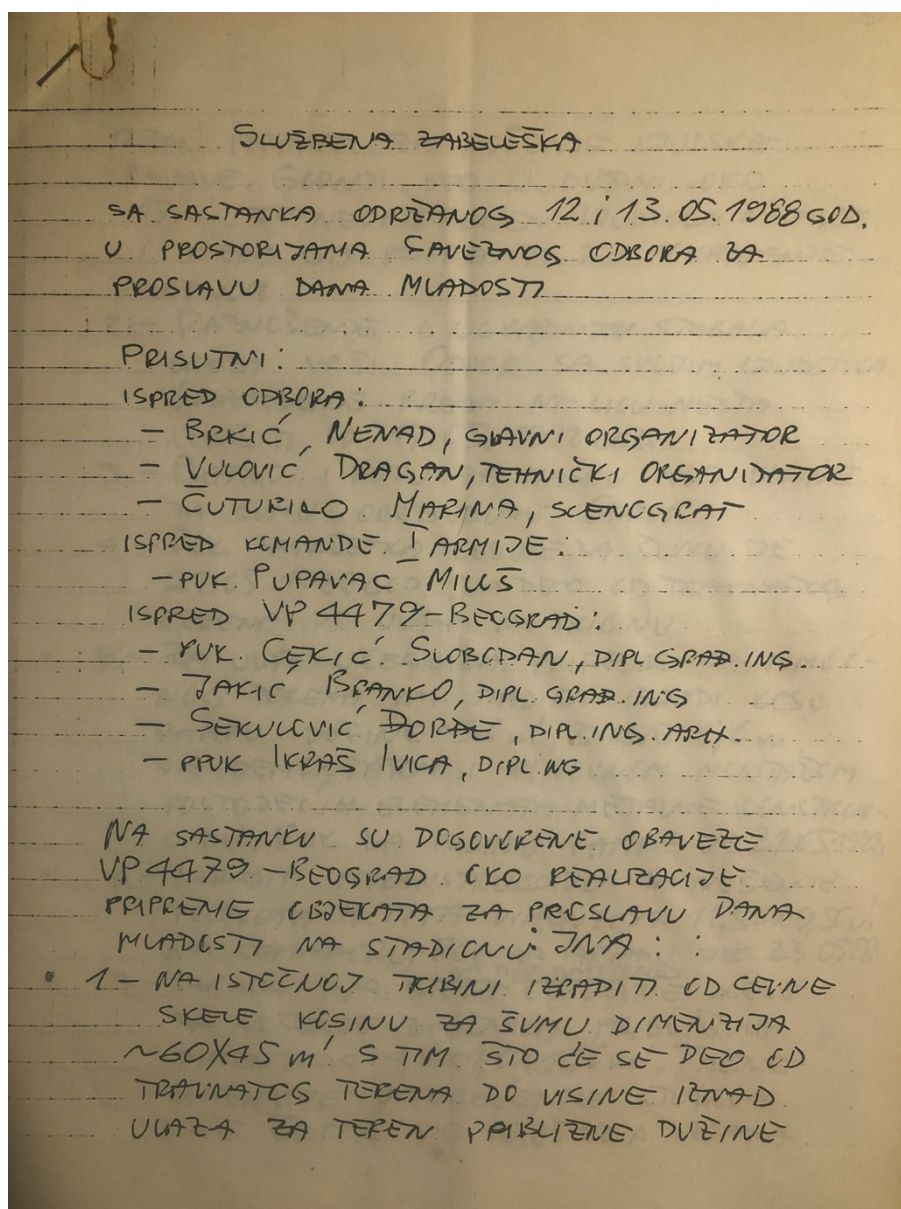 SLUŽBENA ZABELEŠKA
SA SASTANKA ODRŽANOG 12 i 13.05.1988 GOD.
U PROSTORIJAMA SAVEZNOG ODBORA ZA
PROSLAVU DANA MLADOSTI
PRISUTNI:
ISPRED ODBORA:
– BRKIĆ NENAD, GLAVNI ORGANIZATOR
– VULOVIĆ DRAGAN, TEHNIČKI ORGANIZATOR
– ČUTURILO MARINA, SCENOGRAF
ISPRED KOMANDE I ARMIJE:
– PUK. PUPAVAC MILIŠ
ISPRED VP 4479 – BEOGRAD:
– PUK. CEKIĆ SLOBODAN, DIPL GRAĐ. ING.
– JAKIĆ BRANKO, DIPL. GRAĐ. ING
– SEKULOVIĆ ĐORĐE, DIPL. ING. ARH.
– PPUK IKRAŠ IVICA, DIPL. ING
NA SASTANKU SU DOGOVORENE OBAVEZE
VP 4479 – BEOGRAD OKO REALIZACIJE
PRIPREME OBJEKATA ZA PROSLAVU DANA
MLADOSTI NA STADIONU JNA:
1 – NA ISTOČNOJ TRIBINI IZGRADITI OD CEVNE
SKELE KOSINU ZA ŠUMU DIMENZIJA
~60X45 m' S TIM ŠTO ĆE SE DEO OD
TRAVNATOG TERENA DO VISINE IZNAD
ULAZA ZA TEREN PRIBLIŽNE DUŽINE